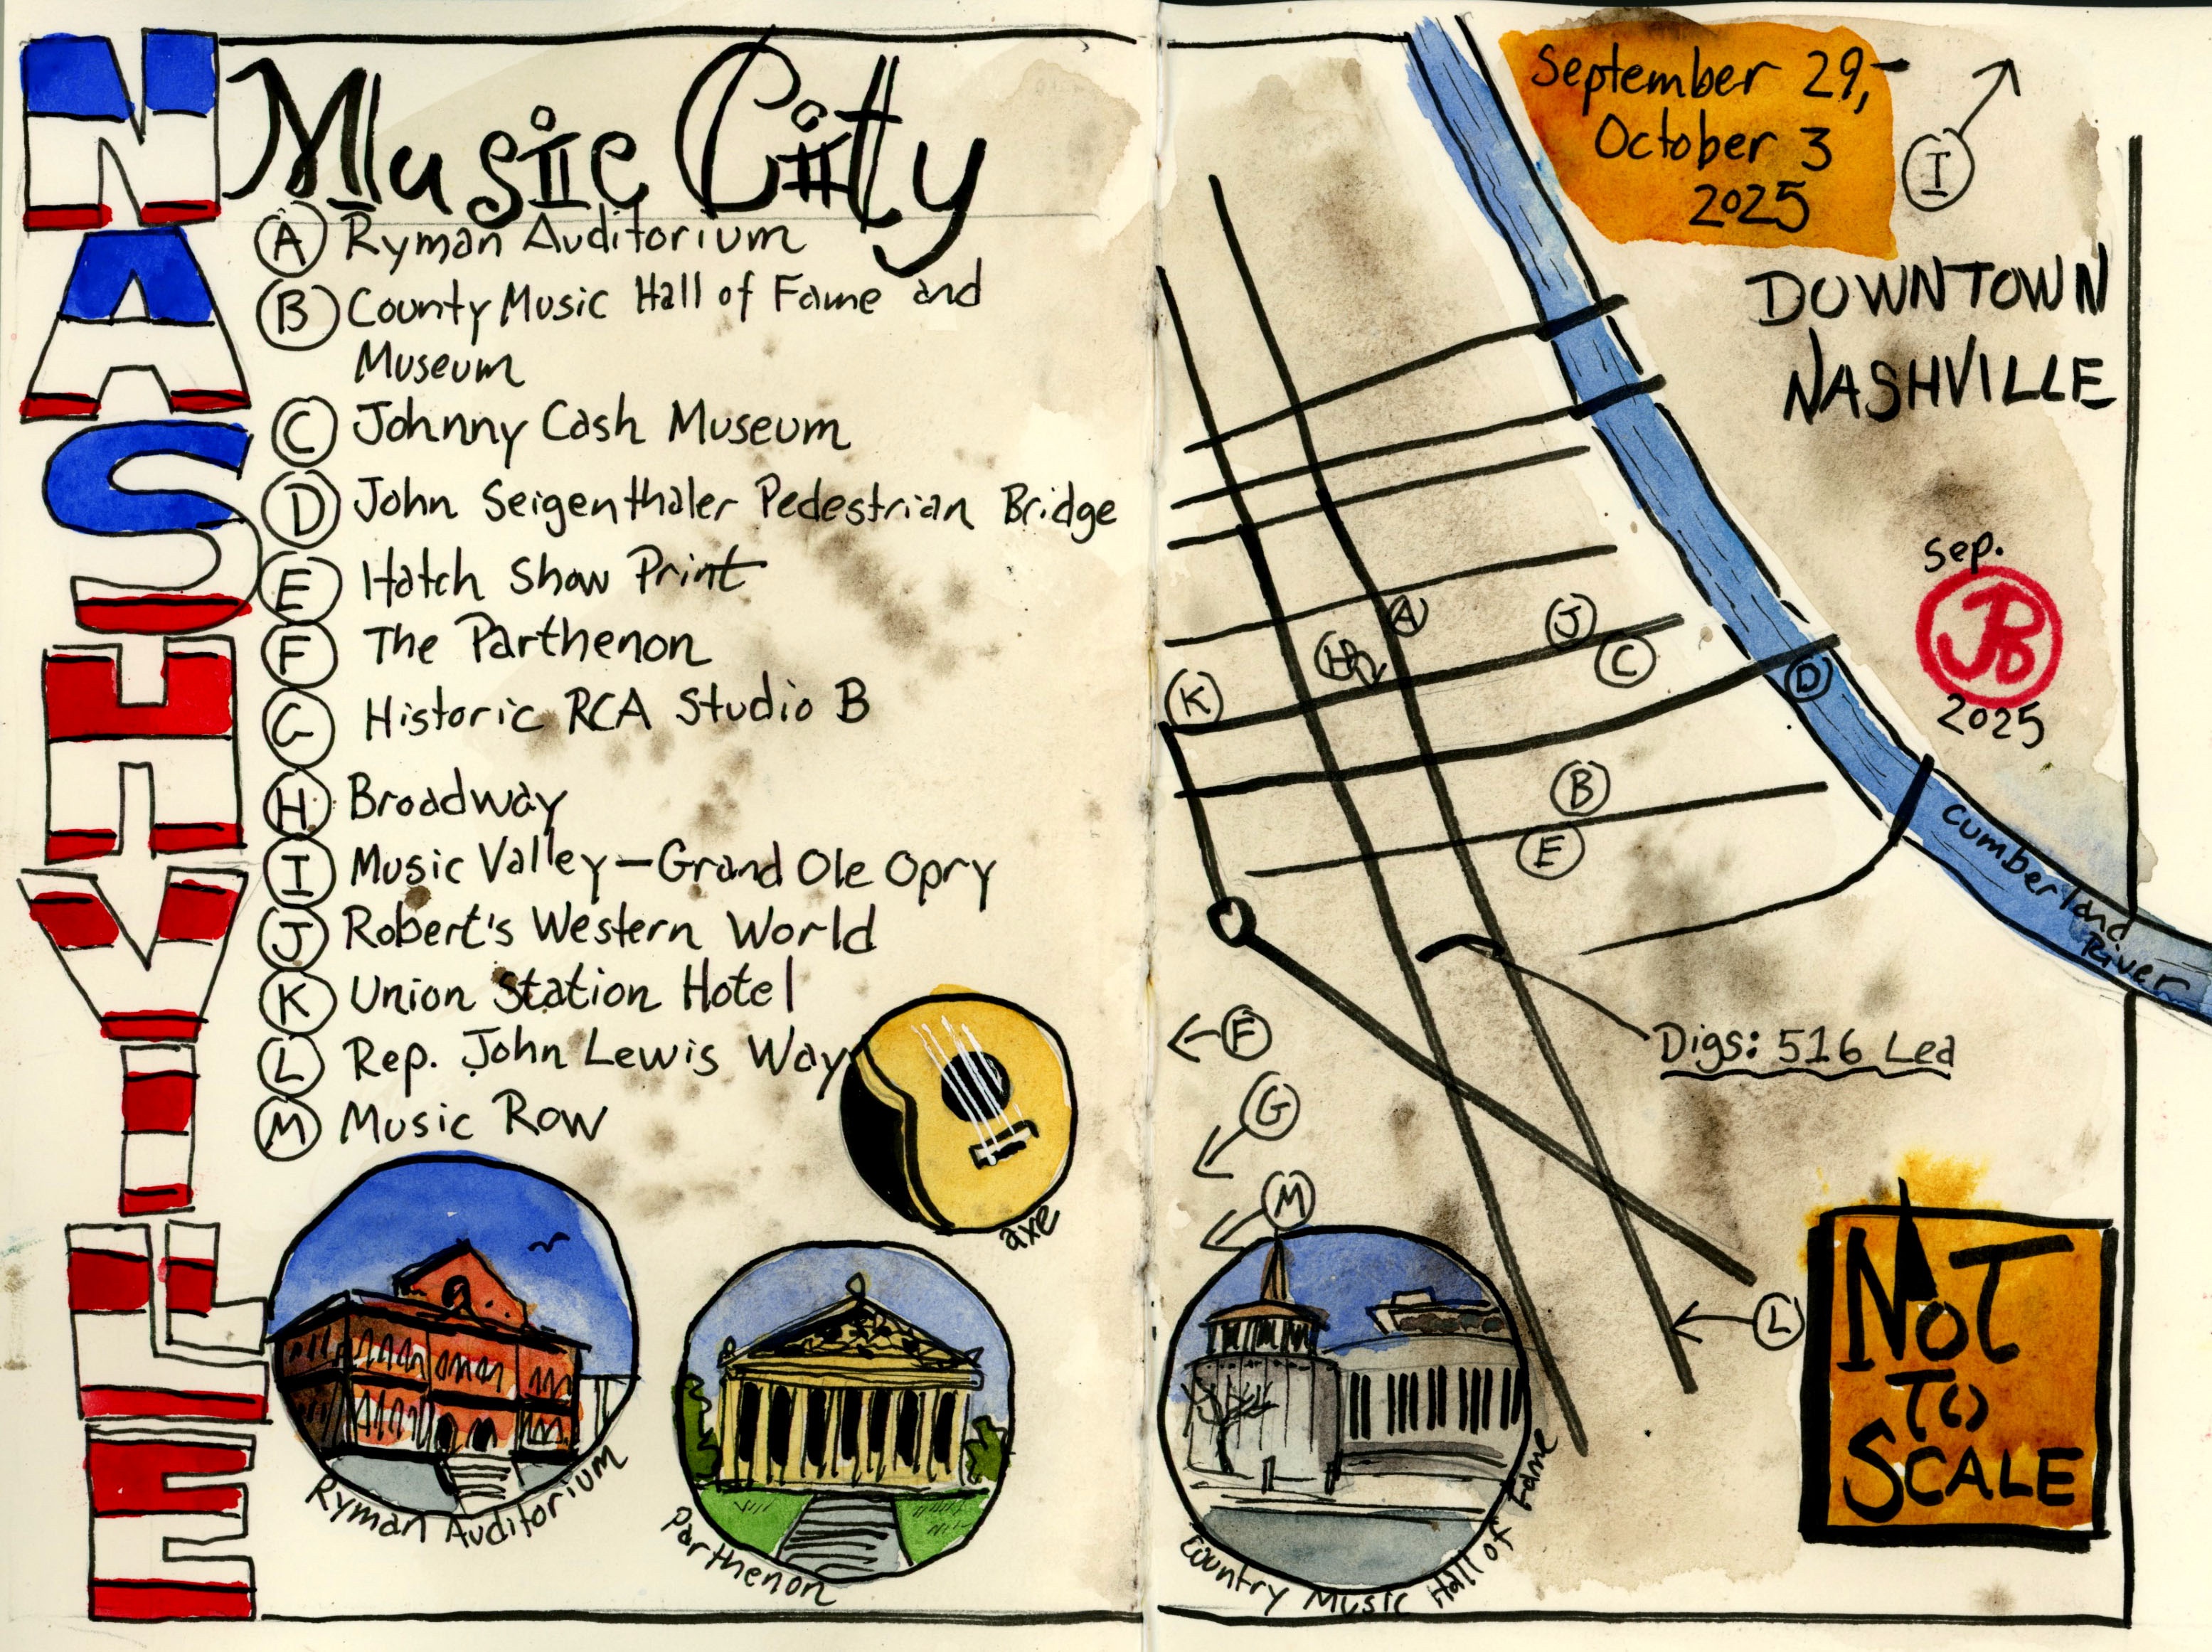 NASHVILLE
Music City
A Ryman Auditorium
B County Music Hall of Fame and
Museum
C Johnny Cash Museum
D John Seigenthaler Pedestrian Bridge
E Hatch Show Print
F The Parthenon
G Historic RCA Studio B
H Broadway
I Music Valley—Grand Ole Opry
J Robert's Western World
K Union Station Hotel
L Rep. John Lewis Way
M Music Row
axe
Ryman Auditorium
Parthenon
September 29,-
October 3
2025
I
DOWNTOWN
NASHVILLE
Sep.
JB
2025
A
J
H
C
K
D
B
E
Cumberland
River
F
Digs: 516 Lea
G
M
L
Country Music Hall of Fame
NOT
TO
SCALE